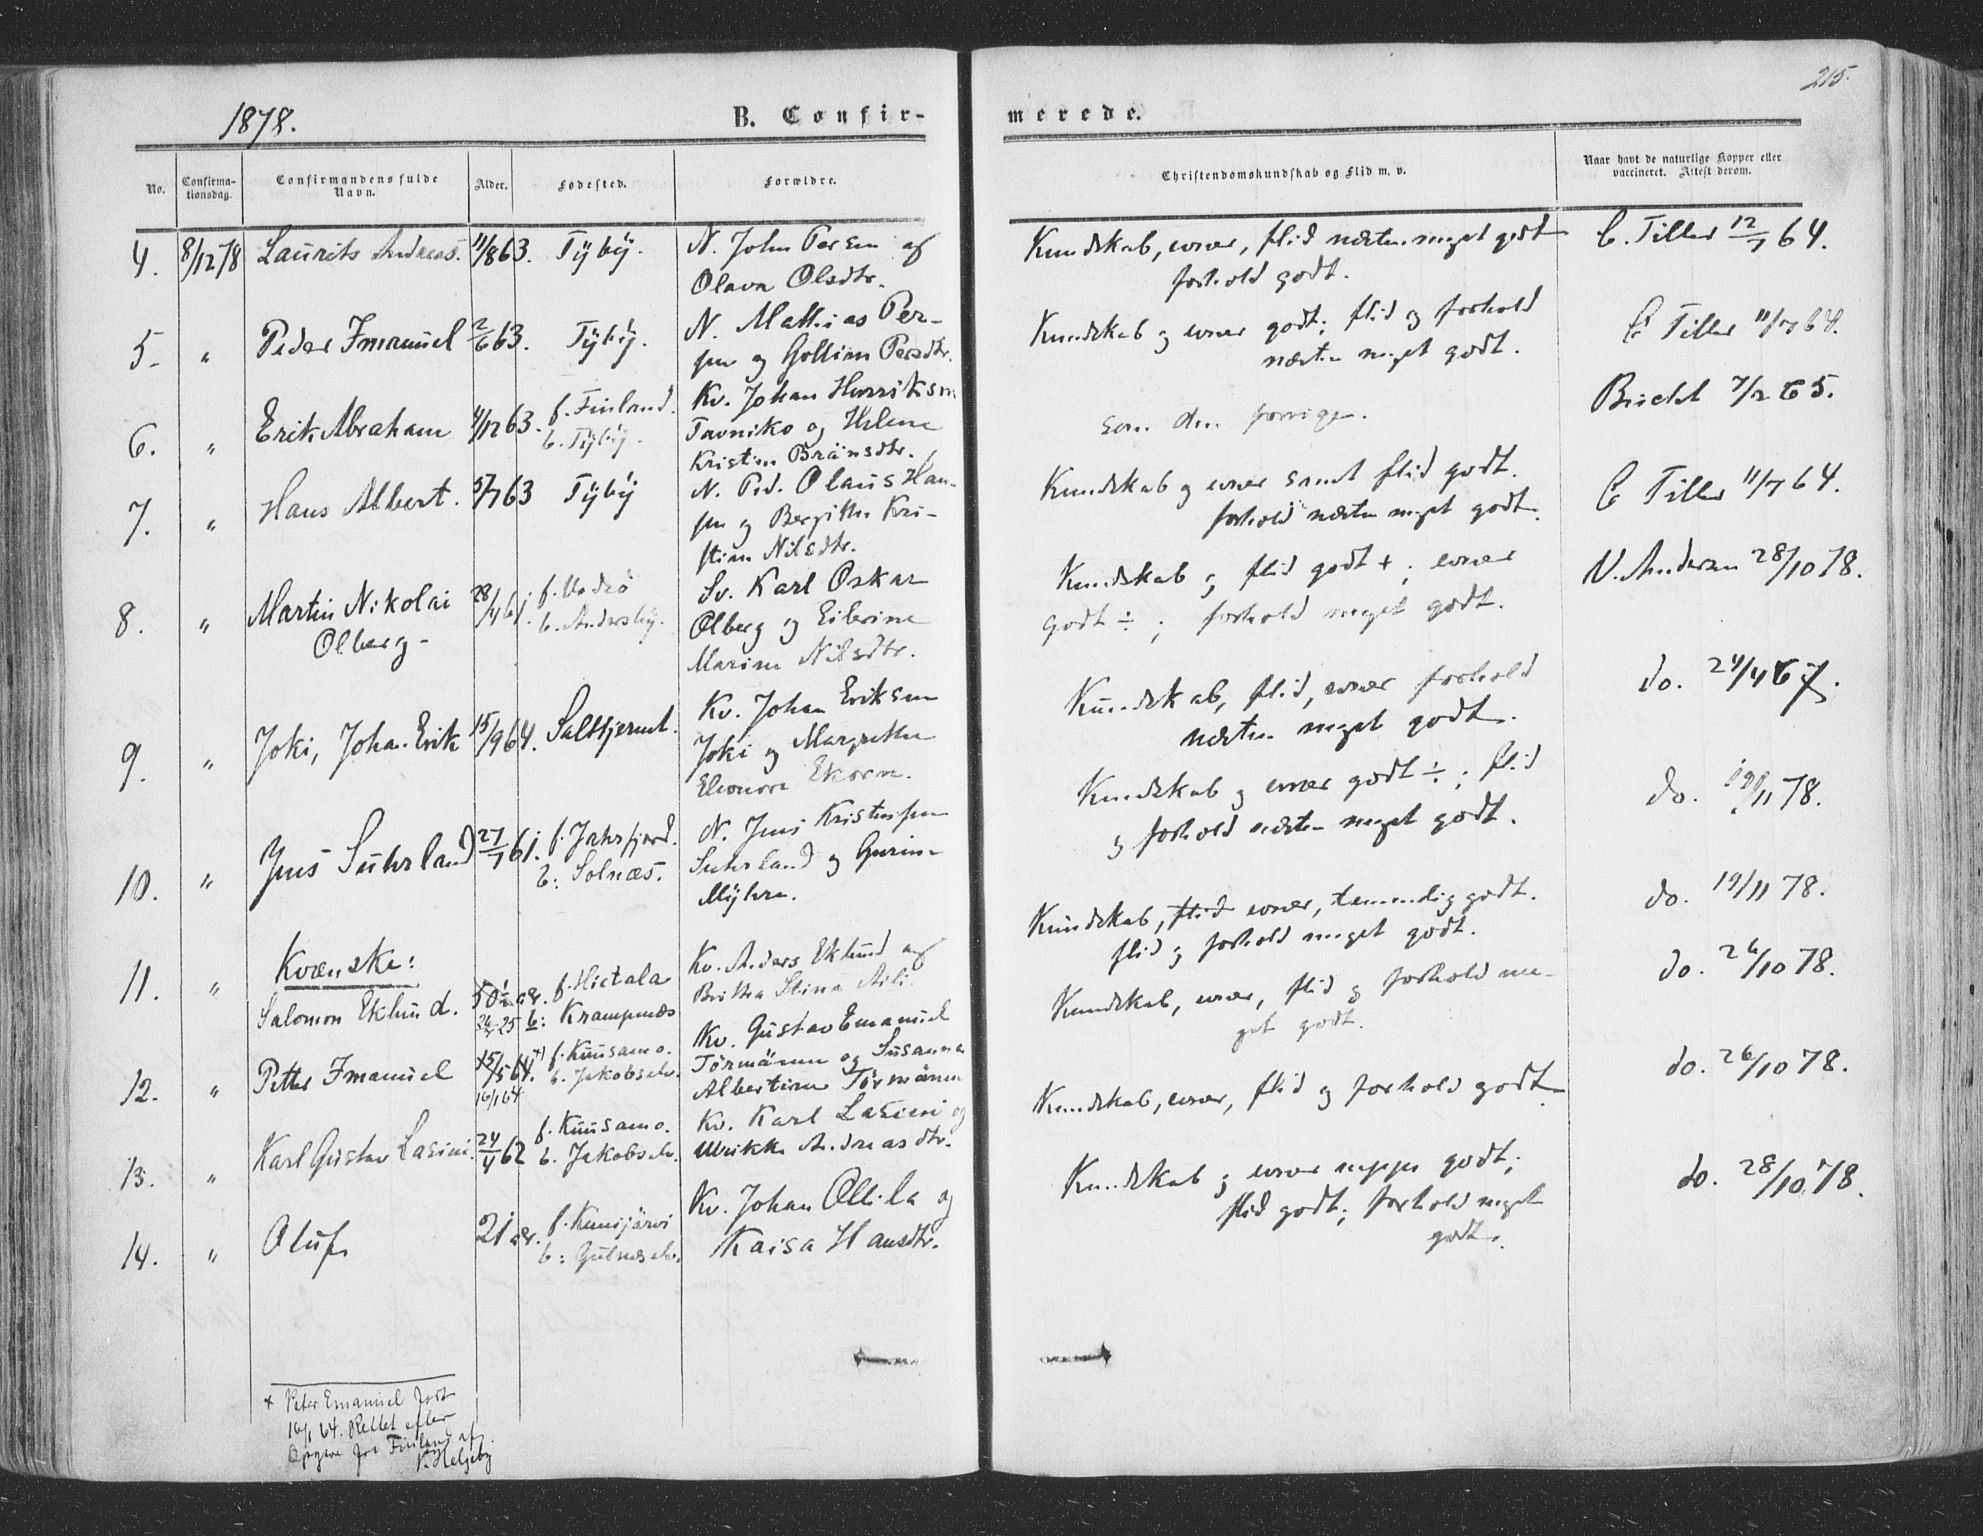 215.
1878.
B. Confir-
merede.
No.
Confirma-
tionsdag.
Confirmandens fulde
Navn.
Alder.
Fødested.
Forældre.
Christendomskundskab og Flid m. v.
Naar havt de naturlige Kopper eller
vaccineret. Attest derom.
4. 8/12 78 Laurits Andreas. 11/8 63. Tÿbÿ. N. John Persen og
Olava Olsdtr.
Kundskab, evner, flid næsten meget godt
forhold godt.
C. Tiller 12/7 64.
5. " Peder Imanuel 2/6 63. Tÿbÿ. N. Mathias Per-
sen og Golline Persdtr.
Kundskab og evner godt; flid og forhold
næsten meget godt.
C Tiller 11/7 64.
6. " Erik Abraham 11/12 63. f. Finland. Kv. Johan Henriksen
b. Tÿbÿ. Tavniko og Helene
Kristine Bränsdtr.
som den forrige.
7/2 65.
7. " Hans Albert. 7/7 63 Tÿbÿ N. Ped. Olaus Han-
sen og Bergitte Kri-
stine Nilsdtr.
Kundskab og evner samt flid godt.
forhold næsten meget godt.
C Tiller 11/7 64.
8. " Martin Nikolai 28/4 61. f. Vadsö Sv. Karl Oskar
Olberg b. Andersbÿ. Olberg og Eilerine
Marine Nilsdtr.
Kundskab og flid godt + ; evner
godt ÷ ; forhold meget godt.
N. Andersen 28/10 78.
9. " Joki, Johan Erik 15/9 64. Saltfjernet. Kv. Johan Eriksen
Joki og Margrethe
Eleonora Ekorn.
Kundskab, flid, evner forhold
næsten meget godt.
do. 24/4 67.
10. " Jens Suhrland 27/7 61. f. Jahrfjord. N. Jens Kristensen
b: Solnæs. Suhrland og Gurine
Mÿhre.
Kundskab og evner godt ÷ ; flid
og forhold næsten meget godt.
do. 19/11 78.
Kvænske:
11. " Salomon Eklund. 50½ år. f. Hietala Kv. Anders Eklund og
26/ 25 b: Krampenæs Britha Stina Aili.
Kundskab, flid evner, temmelig godt.
flid og forhold meget godt.
do. 19/11 78.
12. " Petter Imanuel 15/5 64. +) f. Kuusamo. Kv. Gustav Emanuel
16/1 64 b. Jakobselv. Törmänen og Susanna
Albertine Törmänen
Kundskab, evner, flid og forhold me-
get godt.
do. 26/10 78.
13. " Karl Gustav Lasini. 24/4 62 f. Kuusamo. Kv. Karl Lasini og
b. Jakobselv. Ulrikke Andreasdtr.
Kundskab, evner, flid og forhold godt
do. 26/10 78.
14. " Oluf. 21 år. f. Kemijärvi Kv. Johan Ollila og
b: Gulnæselv. Kaisa Hansdtr.
Kundskab og evner neppe godt;
flid godt; forhold meget
godt.
do. 28/10 78.
+ Peter Emanuel født
16/1 64. Rettet efter
Opgave fra Finland af